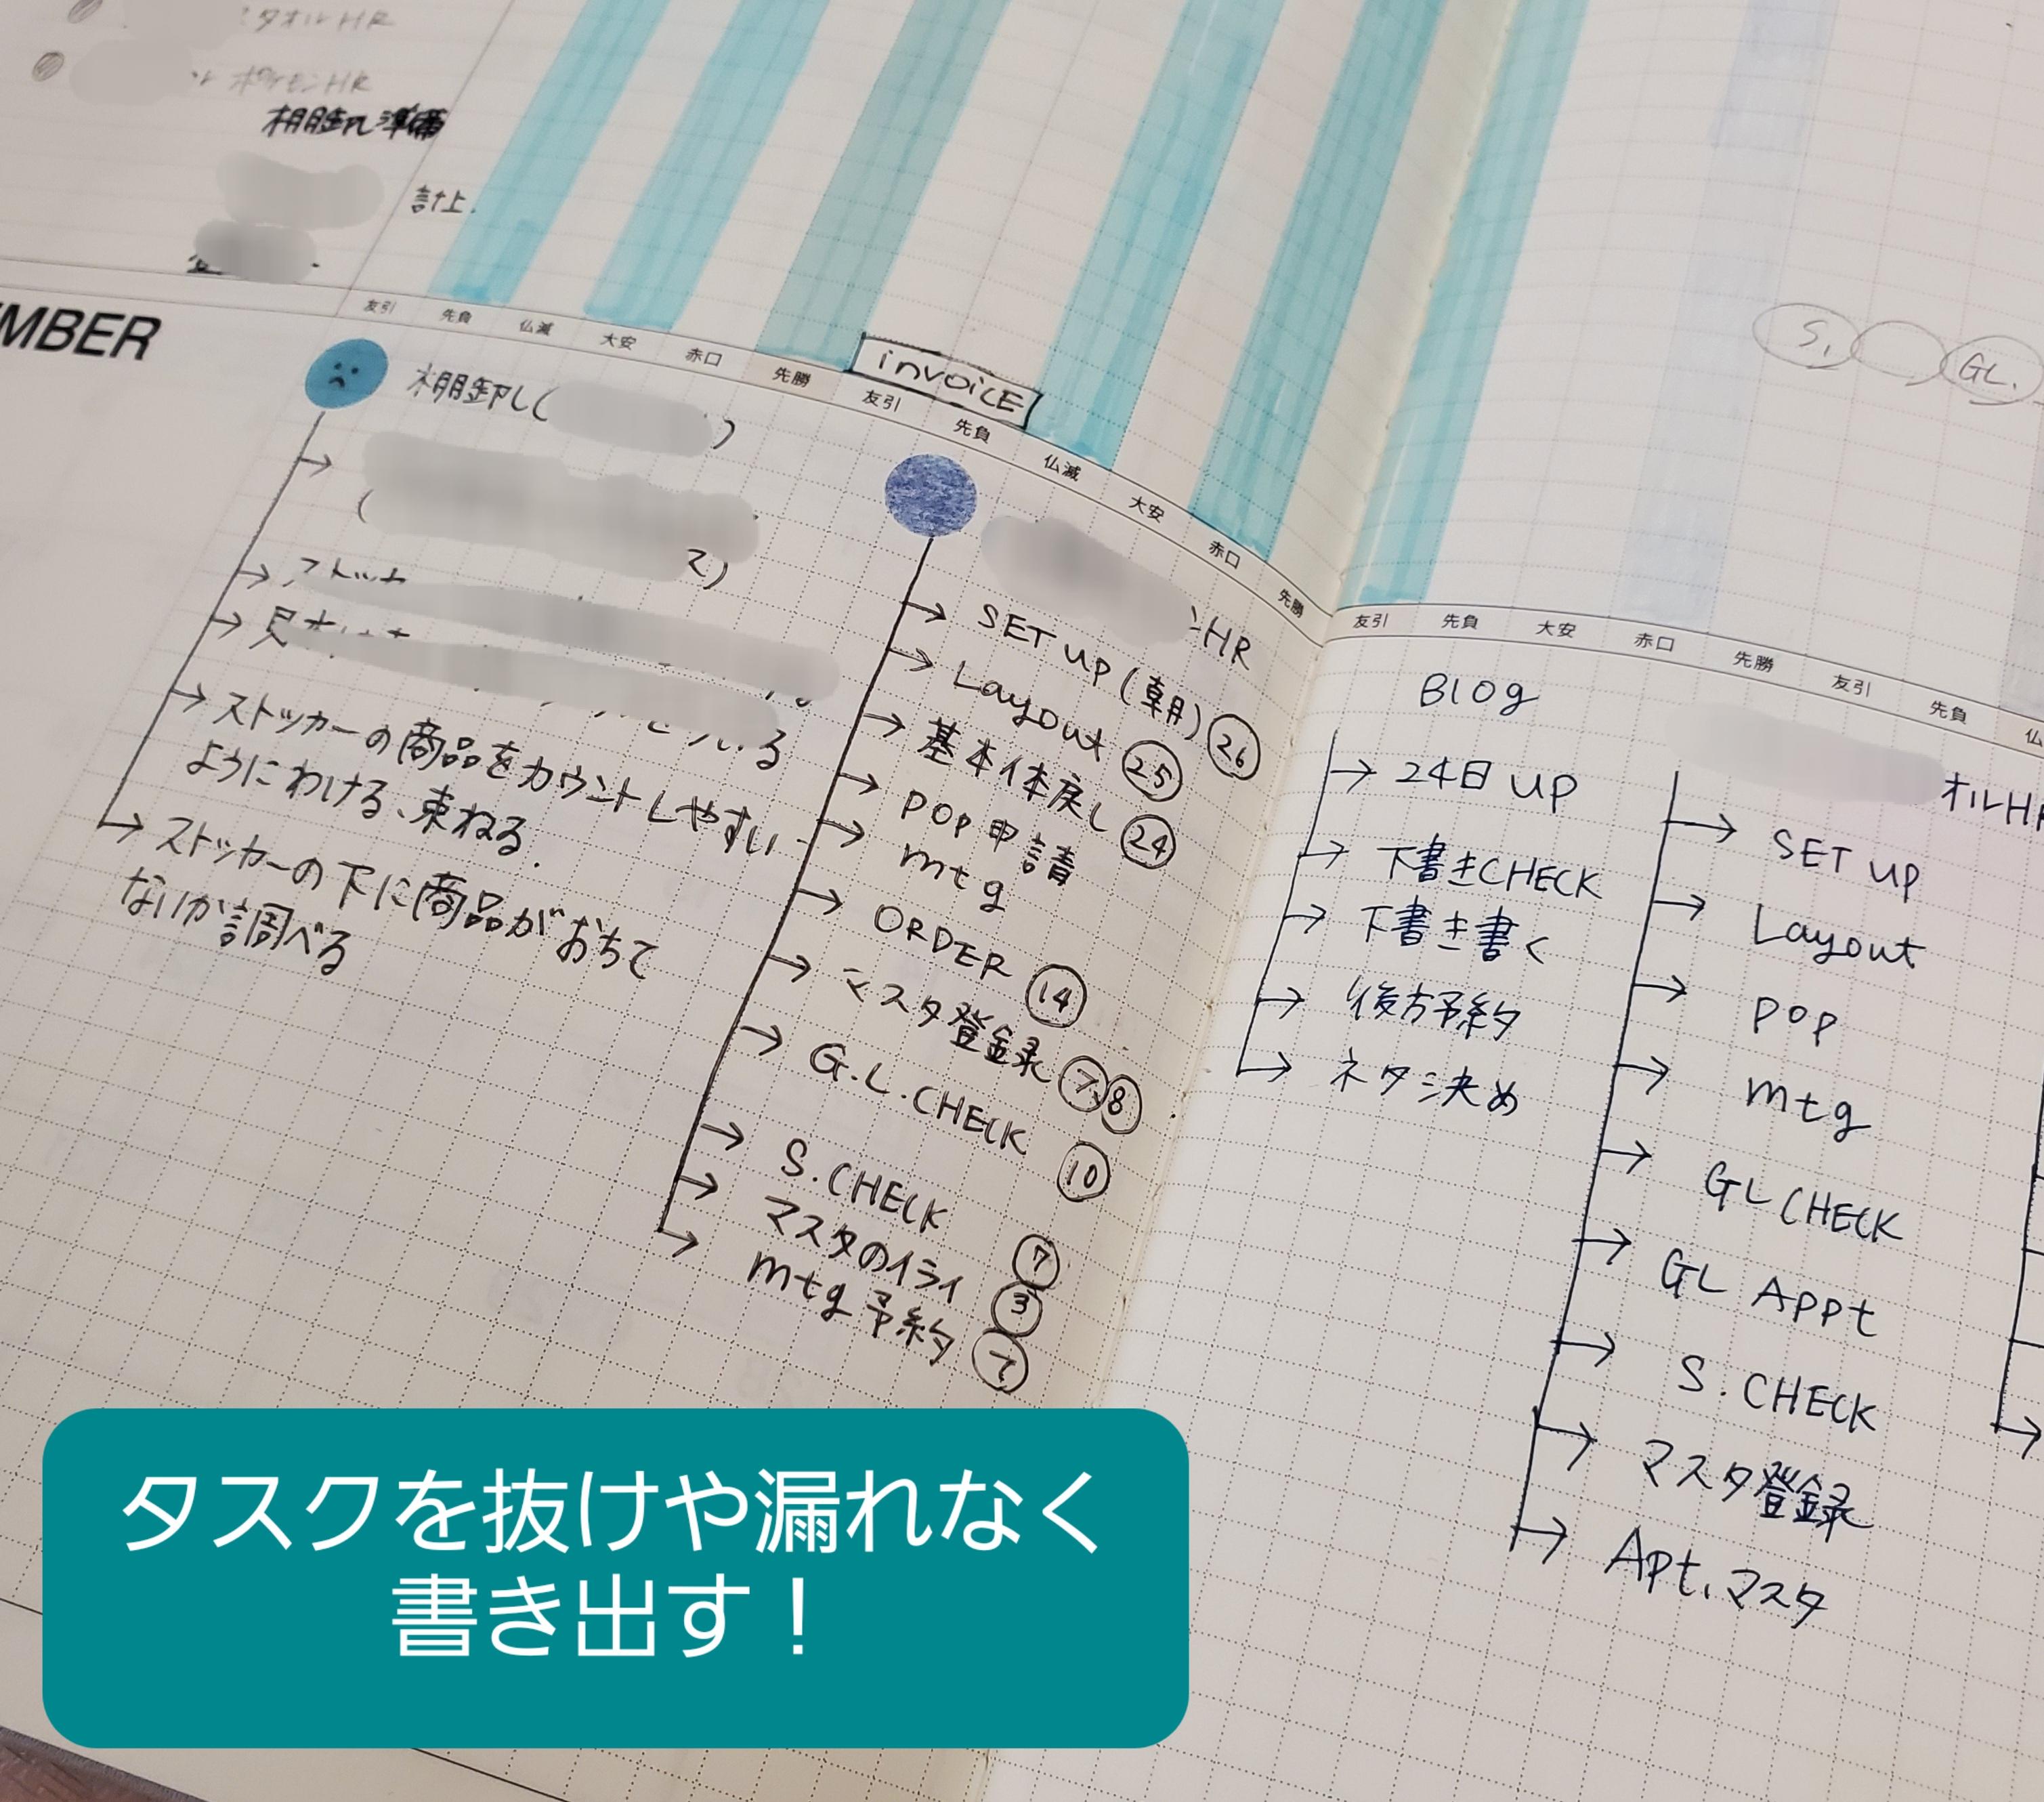 タオルHR
ポケモンHR
棚卸し準備
計上.
MBER
友引 先負 仏滅 大安 赤口 先勝 友引 先負 仏滅 大安 赤口 先勝
invoice
S, GL.
友引 先負 大安 赤口 先勝 友引 先負 仏
棚卸し( )
(
て)
ストッカ
見本
る
ストッカーの商品をカウントしやすい
ようにわける、束ねる.
ストッカーの下に商品がおちて
ないか調べる
HR
SET UP (朝) 26
Layout 25
基本体戻し 24
POP申請
mtg
ORDER 14
マスタ登録 7,8
G.L.CHECK 10
S.CHECK 7
マスタのイライ 3
mtg予約 7
Blog
24日 UP
下書きCHECK
下書き書く
後方予約
ネタ決め
オルHR
SET UP
Layout
POP
mtg
GL CHECK
GL Appt
S.CHECK
マスタ登録
Apt.マスタ
タスクを抜けや漏れなく
書き出す！